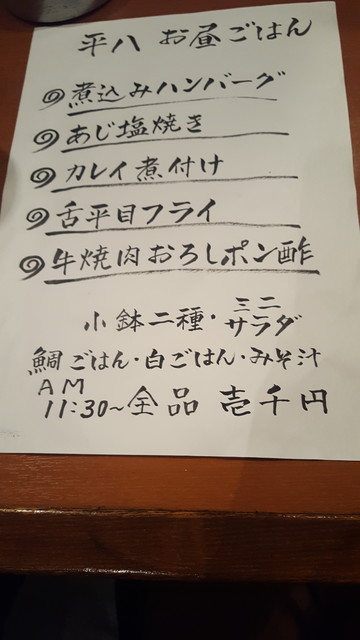 平八 お昼ごはん
煮込みハンバーグ
あじ塩焼き
カレイ煮付け
舌平目フライ
牛焼肉おろしポン酢
小鉢二種・ミニサラダ
鯛ごはん・白ごはん・みそ汁
AM
11:30~全品 壱千円